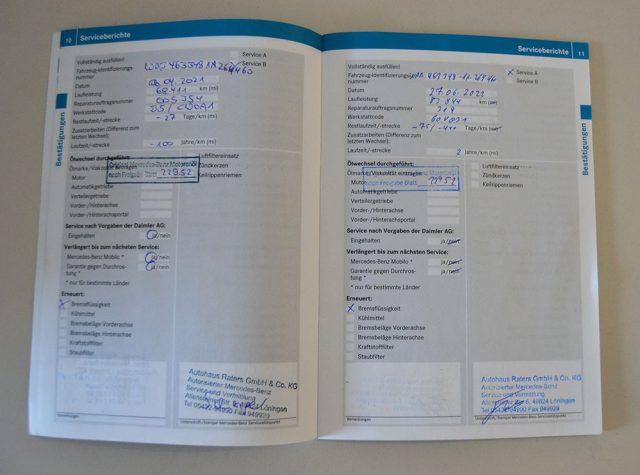 10 Serviceberichte
Service A
Service B
Vollständig ausfüllen!
Fahrzeug-Identifizierungs-
nummer
Datum 04.2021
Laufleistung 68411 km (mi)
Reparaturauftragsnummer
Werkstattcode
Restlaufzeit/-strecke -27 Tage/km (mi)
Zusatzarbeiten (Differenz zum
letzten Wechsel):
Laufzeit/-strecke -100 Jahre/km (mi)
Ölwechsel durchgeführt:
Ölmarke/Viskosität
Original Mercedes-Benz Motorenöl
Motor nach Freigabe Blatt 229.52
Automatikgetriebe
Verteilergetriebe
Vorder-/Hinterachse
Vorder-/Hinterachsportal
Luftfiltereinsatz
Zündkerzen
Keilrippenriemen
Service nach Vorgaben der Daimler AG:
Eingehalten ja/nein
Verlängert bis zum nächsten Service:
Mercedes-Benz Mobilo * ja/nein
Garantie gegen Durchros-
tung * ja/nein
* nur für bestimmte Länder
Erneuert:
Bremsflüssigkeit
Kühlmittel
Bremsbeläge Vorderachse
Bremsbeläge Hinterachse
Kraftstofffilter
Staubfilter
Autohaus Raters GmbH & Co. KG
Autorisierter Mercedes-Benz
Service und Vermittlung
Löningen
Fax 949929
Bemerkungen
Unterschrift/Stempel Mercedes-Benz Servicestützpunkt
Bestätigungen
Serviceberichte 11
Service A
Service B
Vollständig ausfüllen!
Fahrzeug-Identifizierungs-
nummer
Datum 27.06.2022
Laufleistung 83844 km (mi)
Reparaturauftragsnummer
Werkstattcode
Restlaufzeit/-strecke Tage/km (mi)
Zusatzarbeiten (Differenz zum
letzten Wechsel):
Laufzeit/-strecke 2 Jahre/km (mi)
Ölwechsel durchgeführt:
Ölmarke/Viskosität eintragen
Motor nach Freigabe Blatt 229.52
Automatikgetriebe
Verteilergetriebe
Vorder-/Hinterachse
Vorder-/Hinterachsportal
Luftfiltereinsatz
Zündkerzen
Keilrippenriemen
Service nach Vorgaben der Daimler AG:
Eingehalten ja/nein
Verlängert bis zum nächsten Service:
Mercedes-Benz Mobilo * ja/nein
Garantie gegen Durchros-
tung * ja/nein
* nur für bestimmte Länder
Erneuert:
Bremsflüssigkeit
Kühlmittel
Bremsbeläge Vorderachse
Bremsbeläge Hinterachse
Kraftstofffilter
Staubfilter
Autohaus Raters GmbH & Co. KG
Autorisierter Mercedes-Benz
Service und Vermittlung
6, 49624 Löningen
Fax 949929
Bemerkungen
Unterschrift/Stempel Mercedes-Benz Servicestützpunkt
Bestätigungen